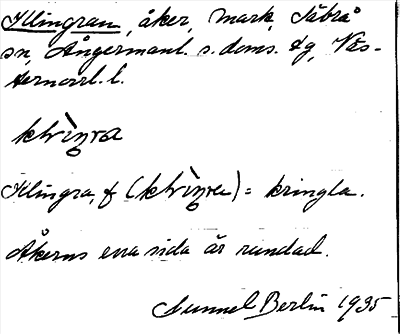 Klingran, åker, mark, Säbrå
sn, Ångermanl. s. doms. dg, Väs-
ternorrl. l.
klìŋra
Klingra, f (klìŋra) = kringla.
Åkerns ena sida är rundad.
Gunnel Berlin 1935